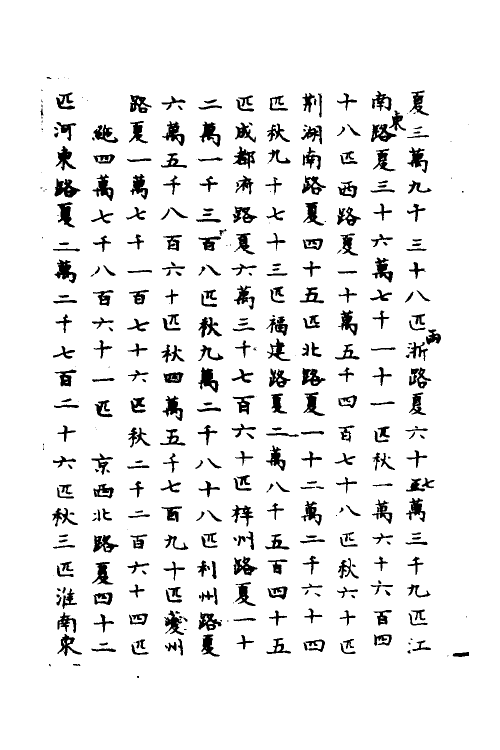 夏三萬九千三十八匹浙兩路夏六十五七萬三千九匹江
南東路夏三十六萬七千一十一匹秋一萬六十六百四
十八匹西路夏一十萬五千四百七十八匹秋六十匹
荆湖南路夏四十五匹北路夏一十二萬二千六十四
匹秋九千七十三匹福建路夏二萬八千五百四十五
匹成都府路夏六萬三千七百六十匹梓州路夏一十
二萬一千三百八匹秋九萬二千八十八匹利州路夏
六萬五千八百六十匹秋四萬五千七百九十匹夔州
路夏一萬七千一百七十六匹秋二千二百六十四匹
絁四萬七千八百六十一匹 京西北路夏四十二
匹河東路夏二萬二千七百二十六匹秋三匹淮南東